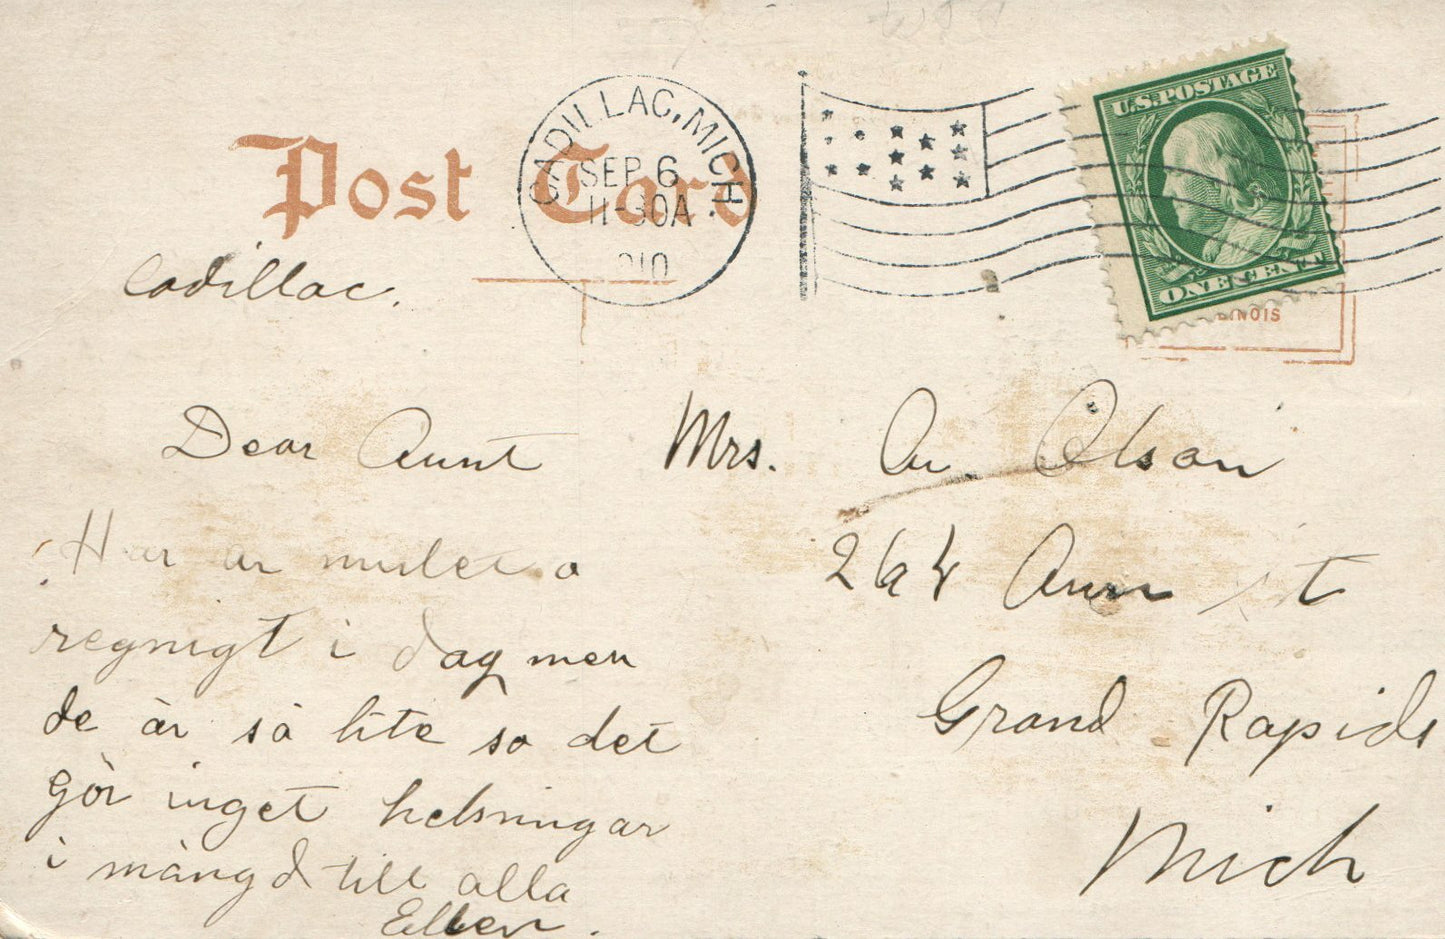 Post Card
CADILLAC, MICH.
SEP 6
11-30A
1910
U.S. POSTAGE
ONE CENT
Cadillac.
Dear Aunt
Här är mulet o
regnigt i dag men
de är så lite so det
gör inget helsningar
i mängd till alla
Ellen.
Mrs. Olson
264 Ann st
Grand Rapids
Mich